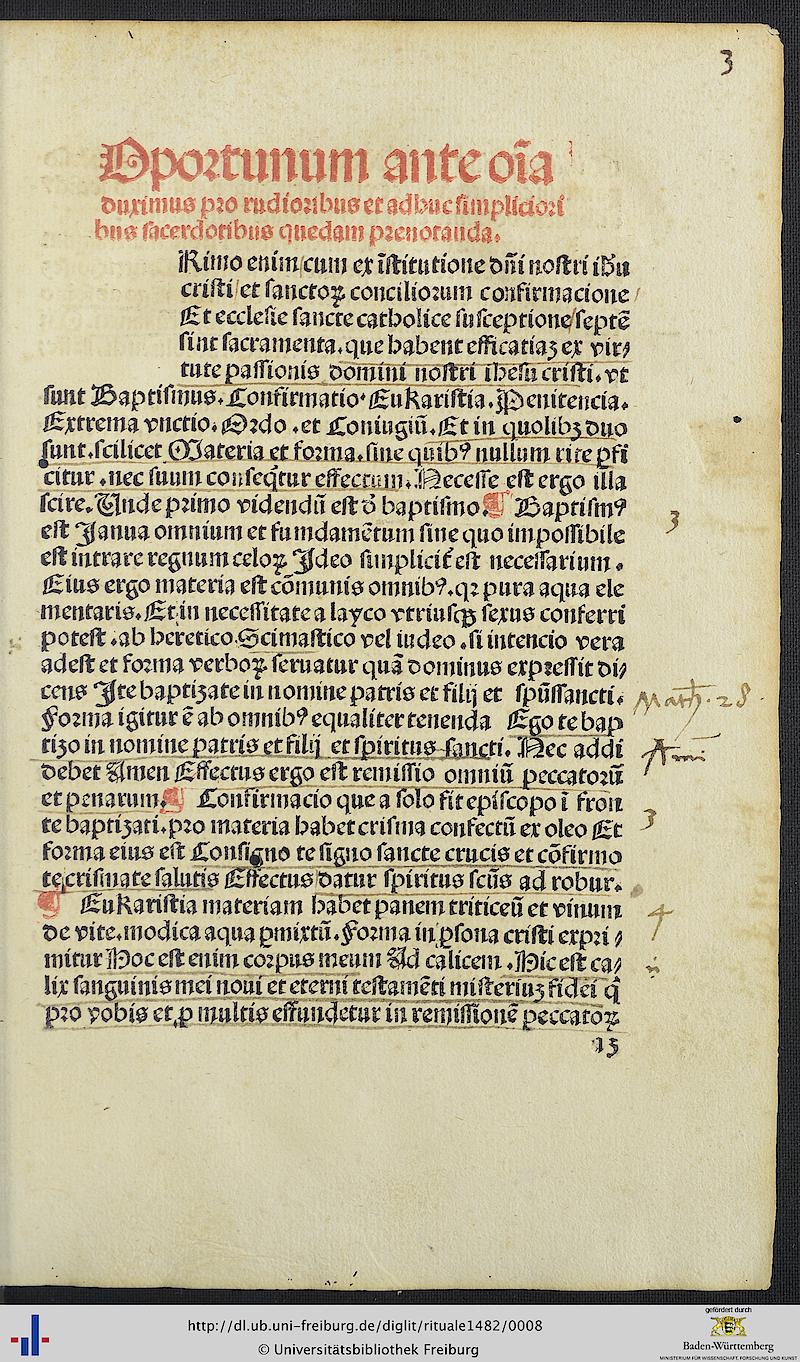 3
Oportunum ante oīa
duximus pro rudioribus et adhuc simpliciori
bus sacerdotibus quedam prenotanda.
Rimo enim/cum ex īstitutione dn̄i nostri ihūu
cristi/et sanctoꝝ conciliorum confirmacione/
Et ecclesie sancte catholice susceptione/septē
sint sacramenta.que habent efficatiaꝫ ex vir⸗
tute passionis domini nostri ihesu cristi.vt
sunt Baptismus.Confirmatio.Eukaristia.Penitencia.
Extrema vnctio.Ordo.et Coniugiū.Et in quolibꝫ duo
sunt.scilicet Materia et forma.sine quibꝰ nullum rite ꝑfi
citur.nec suum conseq̄tur effectum.Necesse est ergo illa
scire.Unde primo videndū est ō baptismo.¶ Baptismꝰ
est Janua omnium et fumdamētum sine quo impossibile
est intrare regnum celoꝝ Ideo simplicit̄ est necessarium.
Eius ergo materia est cōmunis omnibꝰ.qꝛ pura aqua ele
mentaris.Et in necessitate a layco vtriusqꝫ sexus conferri
potest.ab heretico.Scimastico vel iudeo.si intencio vera
adest et forma verboꝝ seruatur quā dominus expressit di⸗
cens Ite baptizate in nomine patris et filij et spūssancti.
Forma igitur ē ab omnibꝰ equaliter tenenda Ego te bap
tizo in nomine patris et filij et spiritus sancti. Nec addi
debet Amen Effectus ergo est remissio omniū peccatorū
et penarum.¶ Confirmacio que a solo fit episcopo ī fron
te baptizati.pro materia habet crisma confectū ex oleo Et
forma eius est Consigno te signo sancte crucis et cōfirmo
te crismate salutis Effectus datur spiritus scūs ad robur.
¶ Eukaristia materiam habet panem triticeū et vinum
de vite.modica aqua ꝑmixtū.Forma in ꝑsona cristi expri⸗
mitur Hoc est enim corpus meum Ad calicem.Hic est ca⸗
lix sanguinis mei noui et eterni testamēti misteriuꝫ fidei q̄
pro vobis et ꝑ multis effundetur in remissionē peccatoꝝ
3
Math. 28
3
4
http://dl.ub.uni-freiburg.de/diglit/rituale1482/0008
© Universitätsbibliothek Freiburg
gefördert durch
Baden-Württemberg
MINISTERIUM FÜR WISSENSCHAFT, FORSCHUNG UND KUNST